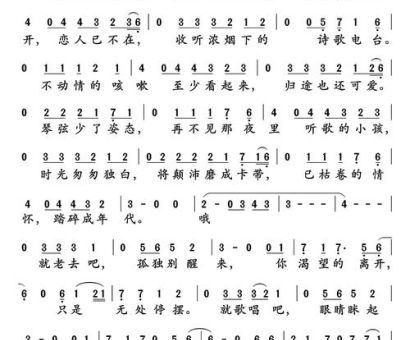 4 0 4 4 3 2 3 6 | 0 3 3 3 2 1 2 | 0 0 5 7 1 6 |
开，恋人已不在， 收听浓烟下的 诗歌电台。
0 1 1 1 2 1 | 4 0 4 4 3 2 3 | 0 3 3 3 2 1 2 6 |
不动情的咳嗽 至少看起来， 归途也还可爱。
2 2 2 2 1 7 1 | 0 2 2 2 1 2 | 0 4 4 3 2 3 |
琴弦少了姿态， 再不见那夜里 听歌的小孩，
0 3 3 3 2 1 2 | 0 2 2 2 2 1 7 1 6 | 0 1 1 1 2 1 |
时光匆匆独白， 将颠沛磨成卡带， 已枯卷的情
4 0 4 4 3 2 | 3 - 0 0 | 2 - 0 3 4 3 | 3 - - - | 4 - - - |
怀，踏碎成年 代。 哦
0 3 3 3 1 | 0 5 6 5 2 | 3 - 0 0 1 | 7 1 7· 5 6 |
就老去吧， 孤独别醒 来， 你 渴望的 离开，
6 0 6 1 2 1 | 7 7 1 2 | 0 3 3 3 2 1 | 0 5 6 5 2 |
只是 无处停摆。 就歌唱吧， 眼睛眯起